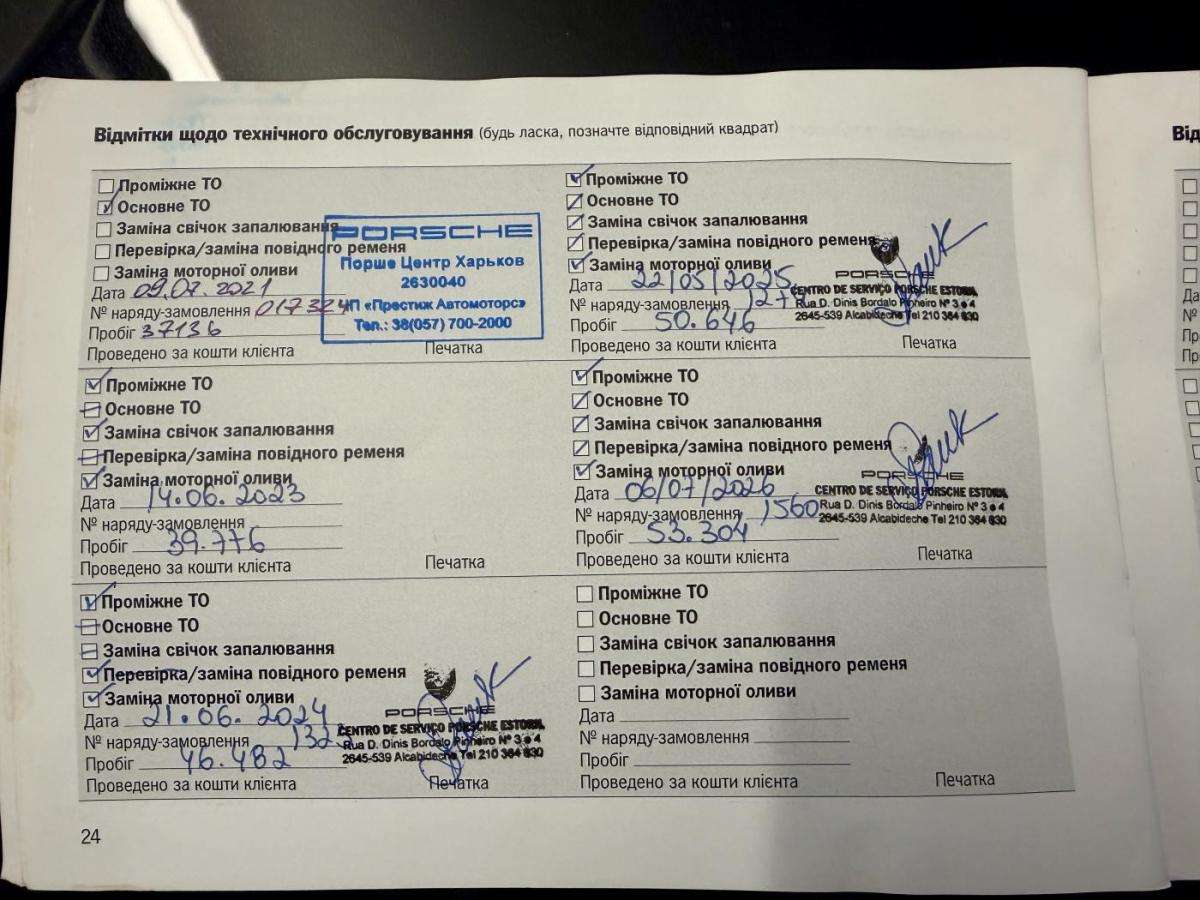 Відмітки щодо технічного обслуговування (будь ласка, позначте відповідний квадрат)
Проміжне ТО
Основне ТО
Заміна свічок запалювання
Перевірка/заміна повідного ременя
Заміна моторної оливи
Дата 09.07.2021
№ наряду-замовлення 017324
Пробіг 37136
Проведено за кошти клієнта Печатка
PORSCHE
Порше Центр Харьков
2630040
ЧП «Престиж Автомоторс»
Тел.: 38(057) 700-2000
Проміжне ТО
Основне ТО
Заміна свічок запалювання
Перевірка/заміна повідного ременя
Заміна моторної оливи
Дата 14.06.2023
№ наряду-замовлення
Пробіг 39.776
Проведено за кошти клієнта Печатка
Проміжне ТО
Основне ТО
Заміна свічок запалювання
Перевірка/заміна повідного ременя
Заміна моторної оливи
Дата 21.06.2024
№ наряду-замовлення
Пробіг 46.482
Проведено за кошти клієнта Печатка
PORSCHE
CENTRO DE SERVIÇO PORSCHE ESTORIL
Rua D. Dinis Bordalo Pinheiro Nº 3 e 4
2645-539 Alcabideche Tel 210 364 630
Проміжне ТО
Основне ТО
Заміна свічок запалювання
Перевірка/заміна повідного ременя
Заміна моторної оливи
Дата 22/05/2025
№ наряду-замовлення
Пробіг 50.646
Проведено за кошти клієнта Печатка
PORSCHE
CENTRO DE SERVIÇO PORSCHE ESTORIL
Rua D. Dinis Bordalo Pinheiro Nº 3 e 4
2645-539 Alcabideche Tel 210 364 630
Проміжне ТО
Основне ТО
Заміна свічок запалювання
Перевірка/заміна повідного ременя
Заміна моторної оливи
Дата 06/07/2026
№ наряду-замовлення 1560
Пробіг 53.304
Проведено за кошти клієнта Печатка
PORSCHE
CENTRO DE SERVIÇO PORSCHE ESTORIL
Rua D. Dinis Bordalo Pinheiro Nº 3 e 4
2645-539 Alcabideche Tel 210 364 630
Проміжне ТО
Основне ТО
Заміна свічок запалювання
Перевірка/заміна повідного ременя
Заміна моторної оливи
Дата
№ наряду-замовлення
Пробіг
Проведено за кошти клієнта Печатка
24